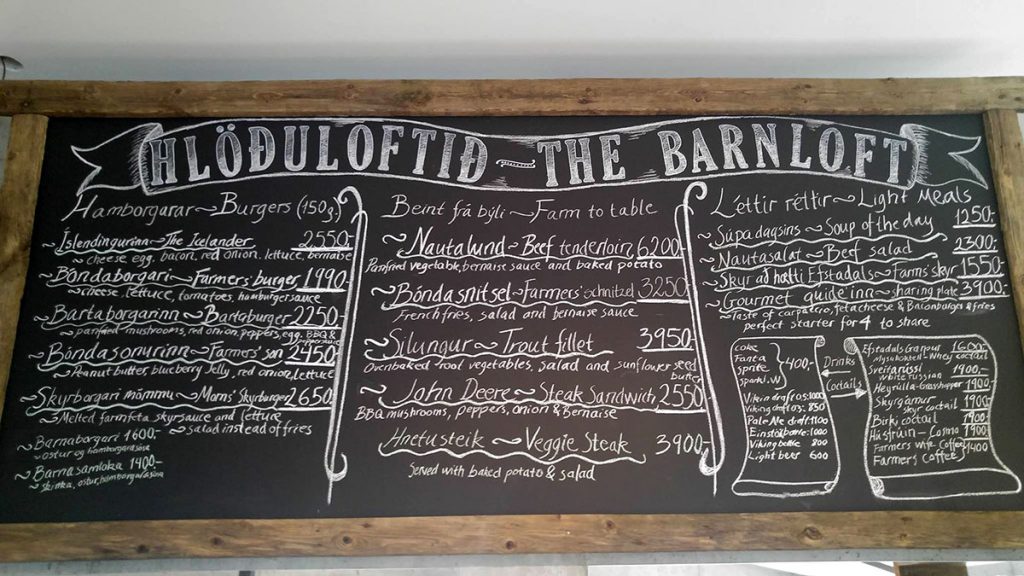 HLÖÐULOFTIÐ ~ THE BARNLOFT
Hamborgarar ~ Burgers (150g.)
Íslendingurinn ~ The Icelander 2550.-
~ cheese egg, bacon, red onion, lettuce, bernaise
~ Bóndaborgari ~ Farmers burger 1990.-
~ cheese, lettuce, tomatoes, hamburger sauce
~ Bartaborgarinn ~ Bartaburger 2250.-
~ panfried mushrooms, red onion, peppers, egg, BBQ &
~ Bóndasonurinn ~ Farmers' son 2450.-
~ Peanut butter, blueberry Jelly, red onion, lettuce
~ Skyrborgari mömmu ~ Moms' Skyrburger 2650
~ Melted farmfeta skyrsauce and lettuce
~ salad instead of fries
~ Barnaborgari 1600.-
~ ostur og hamborgarasósa
~ Barnasamloka 1400.-
~ skinka, ostur, hamborgarasósa
Beint frá býli ~ Farm to table
~ Nautalund ~ Beef tenderloin 6200.-
Panfried vegetable, bernaise sauce and baked potato
~ Bóndasnitsel ~ Farmers' schnitzel 3250
French fries, salad and bernaise sauce
~ Silungur ~ Trout fillet 3950
Ovenbaked root vegetables, salad and sunflower seed
butter
~ John Deere ~ Steak Sandwich 2550
BBQ mushrooms, peppers, onion & Bernaise
Hnetusteik ~ Veggie Steak 3900.-
Served with baked potato & salad
Léttir réttir ~ Light Meals
~ Súpa dagsins ~ Soup of the day 1250.-
~ Nautasalat ~ Beef salad 2300.-
~ Skyr að hætti Efstadals ~ Farms' skyr 1550
~ Gourmet guide inn ~ sharing plate 3900.-
~ Taste of carpaccio, fetacheese & Baconburger & fries
perfect starter for 4 to share
coke
Fanta
sprite
400.-
Viking draft 0,5: 1000
Viking draft 0,3: 850
Pale Ale draft: 1100
Einstök bottle: 1000
Viking bottle: 800
Light beer 600
Drinks
Coctails
1600.-
Whey coctail
White Russian 1900.-
1900
Skyrgámur
skyr coctail 1900
Birki coctail 1900
Húsfrúin ~ Cosmo 1900
Farmers wife Coffee
Farmers Coffee 1400